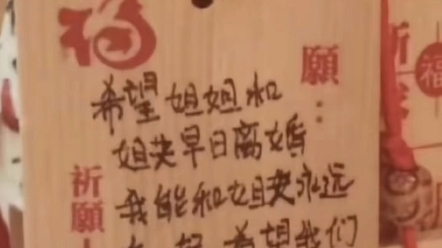 福
願：
希望姐姐和
姐夫早日离婚
我能和姐夫永远
希望我们
祈願
福